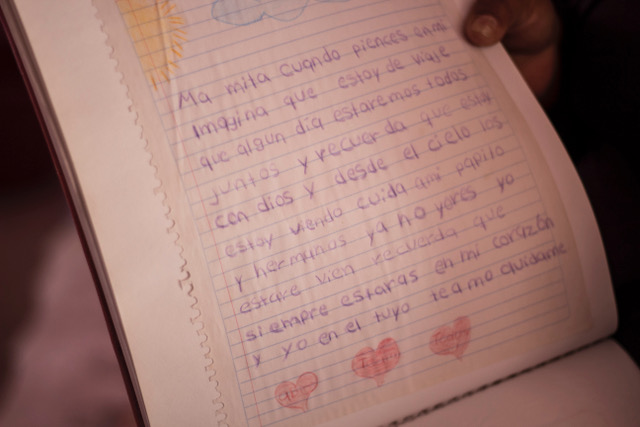 Ma mita cuando piences en mi
Imagina que estoy de viaje
que algun dia estaremos todos
juntos y recuerda que estoy
con dios y desde el cielo los
estoy viendo cuida ami papito
y hermanus ya no yores yo
estare vien recuerda que
siempre estaras en mi corazón
y yo en el tuyo te amo quidame